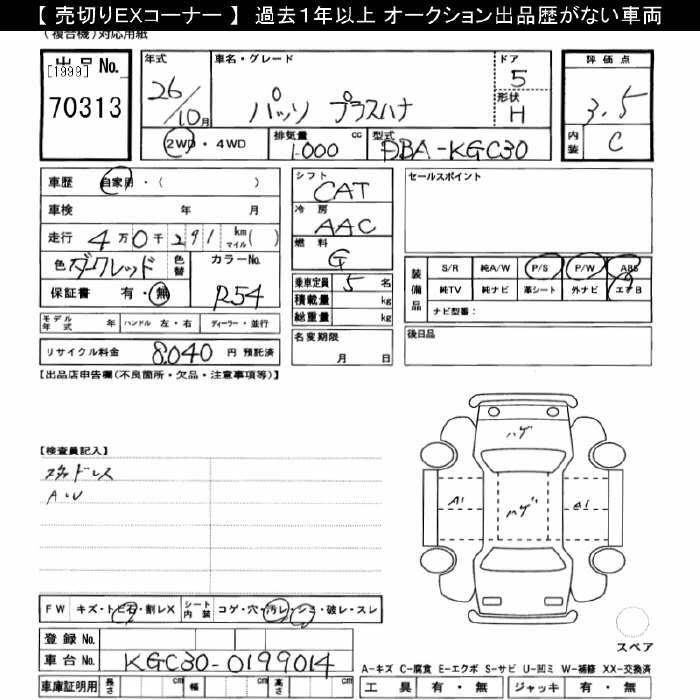 【 売切りEXコーナー 】 過去1年以上 オークション出品歴がない車両
(複合機)対応用紙
出品 No.
[1999]
70313
年式
26/10月
車名・グレード
パッソ プラスハナ
ドア
5
形状
H
評価点
3.5
内装
C
2WD・4WD
排気量
1.000 cc
型式
DBA-KGC30
車歴 自家用・( )
車検 年 月
走行 4万0千291 km マイル( )
色 ダークレッド 色替 カラーNo.
R54
保証書 有・無
シフト
CAT
冷房
AAC
燃料
G
乗車定員 5 名
積載量 kg
総重量 kg
名変期限
月 日
セールスポイント
装備品
S/R 純A/W P/S P/W ABS
純TV 純ナビ 革シート 外ナビ エアB
ナビ型番:
後日品
モデル年式 年 ハンドル 左・右 ディーラー・並行
リサイクル料金 8,040 円 預託済
【出品店申告欄(不良箇所・欠品・注意事項等)】
【検査員記入】
スタッドレス
A・U
ハゲ
A1
ハゲ
A1
FW キズ・トビ石・割レX シート内装 コゲ・穴・汚レ・シミ・破レ・スレ
登録 No.
車台 No. KGC30-0199014
車庫証明用 長さ cm 幅 cm 高さ cm
スペア
A-キズ C-腐食 E-エクボ S-サビ U-凹ミ W-補修 XX-交換済
工具 有・無 ジャッキ 有・無